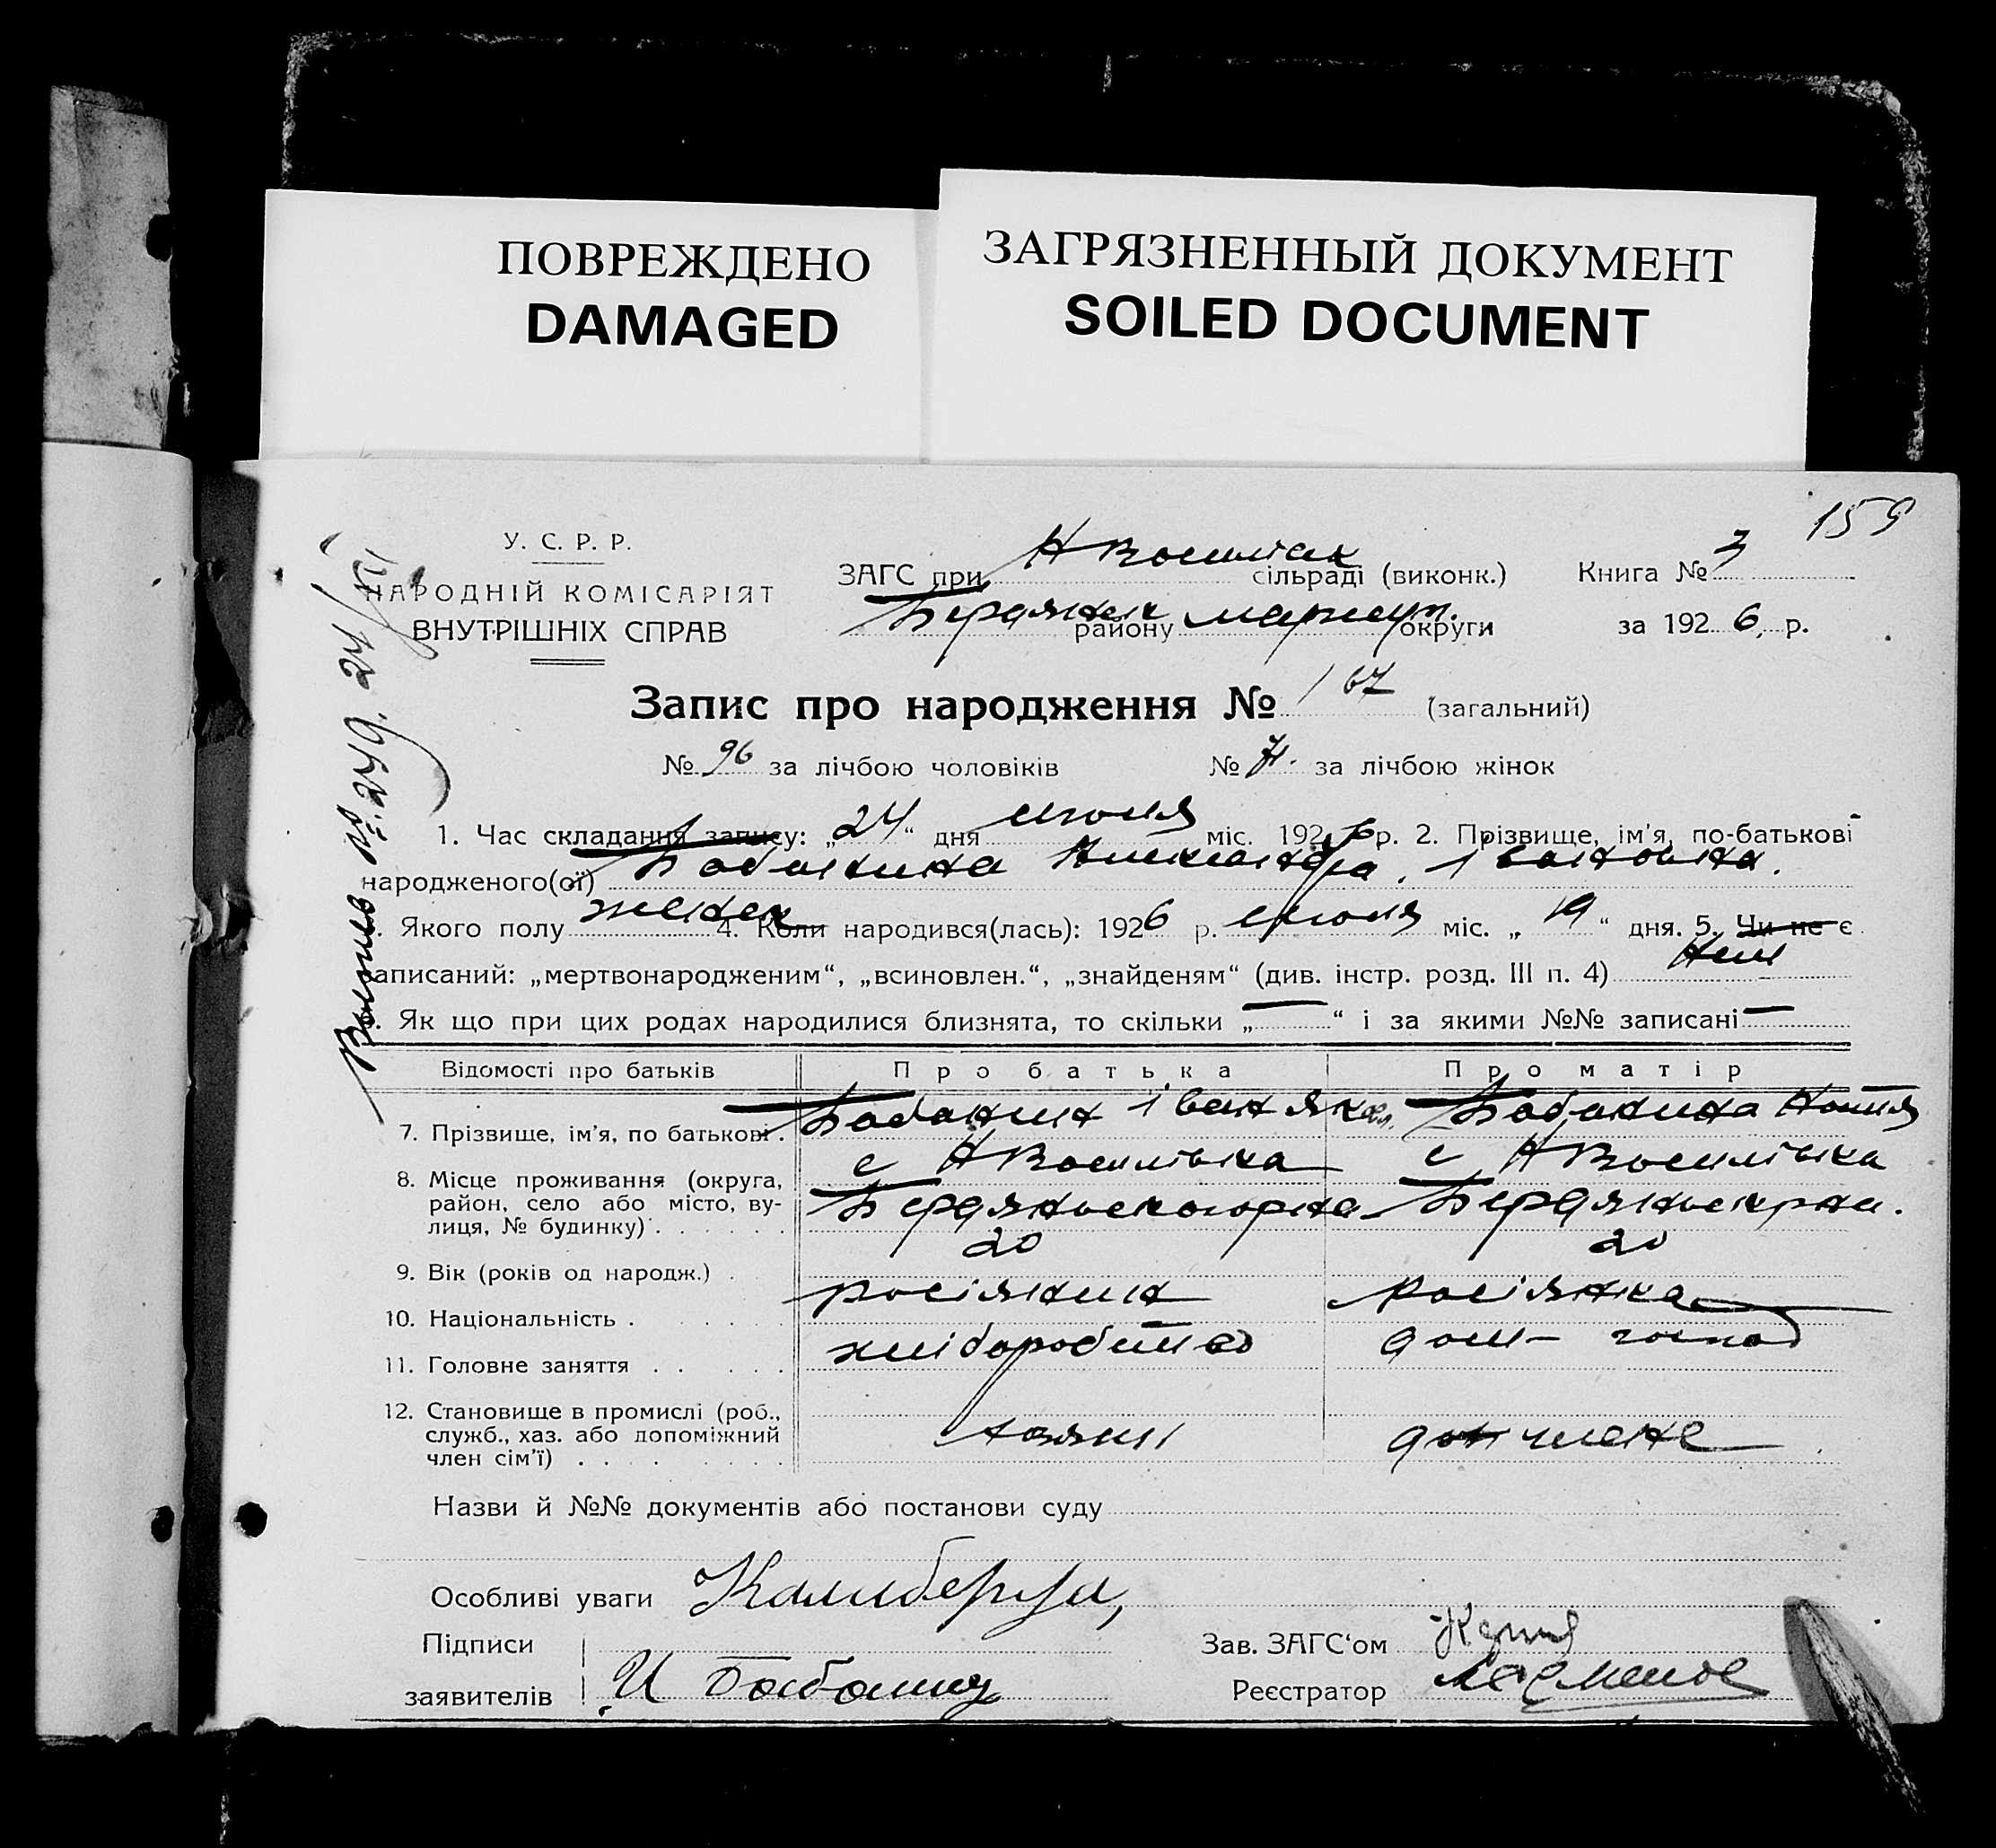 ПОВРЕЖДЕНО
DAMAGED
ЗАГРЯЗНЕННЫЙ ДОКУМЕНТ
SOILED DOCUMENT
159
У. С. Р. Р.
НАРОДНІЙ КОМІСАРІЯТ
ВНУТРІШНІХ СПРАВ
ЗАГС при сільраді (виконк.) Книга № 3
Бердянськ району мариуп. округи за 1926 р.
Запис про народження № 167 (загальний)
№ 96 за лічбою чоловіків № 71 за лічбою жінок
1. Час складання запису: „24“ дня июля міс. 1926 р. 2. Прізвище, ім'я, по-батькові
народженого(ої) Бабакина Александра Івановна.
. Якого полу женск 4. Коли народився(лась): 1926 р. июля міс. „19“ дня. 5. Чи не є
записаний: „мертвонародженим“, „всиновлен.“, „знайденям“ (див. інстр. розд. III п. 4)
. Як що при цих родах народилися близнята, то скільки „—“ і за якими №№ записані —
Відомості про батьків Про батька Про матір
7. Прізвище, ім'я, по батькові . Бабакин Іван Бабакина
8. Місце проживання (округа, район, село або місто, вулиця, № будинку) . с НВасилівка с НВасилівка
Бердянського рна Бердянськ рна.
9. Вік (років од народж.) . 20 20
10. Національність . росіянин росіянка
11. Головне заняття . хлібороб дом- господ
12. Становище в промислі (роб.,
служб., хаз. або допоміжний
член сім'ї) . хазяїн
Назви й №№ документів або постанови суду
Особливі уваги
Підписи Зав. ЗАГС'ом
заявителів И Реєстратор